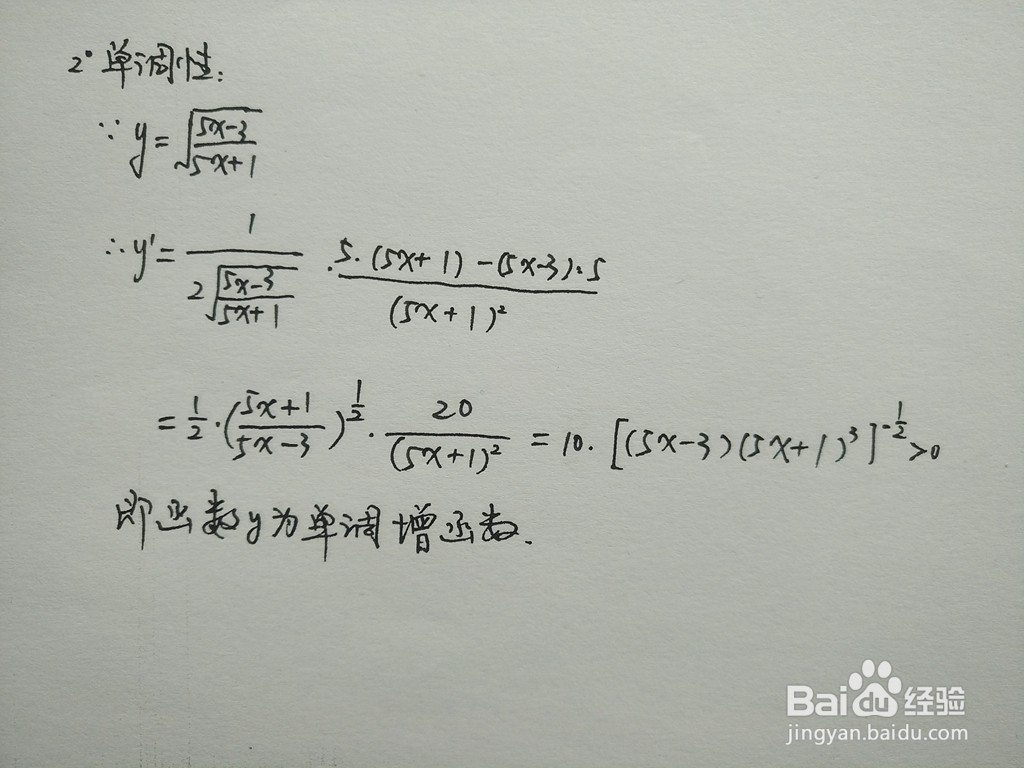 2° 单调性:
∵ y = √((5x-3)/(5x+1))
∴ y' = 1/(2√((5x-3)/(5x+1))) · (5·(5x+1)-(5x-3)·5)/(5x+1)²
= 1/2·((5x+1)/(5x-3))^(1/2) · 20/(5x+1)² = 10·[(5x-3)(5x+1)³]^(-1/2) >0
即函数y为单调增函数.
Baidu经验
jingyan.baidu.com